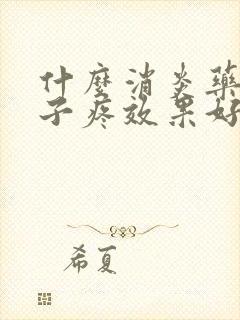 什麼消炎藥
子疼效果好
希夏